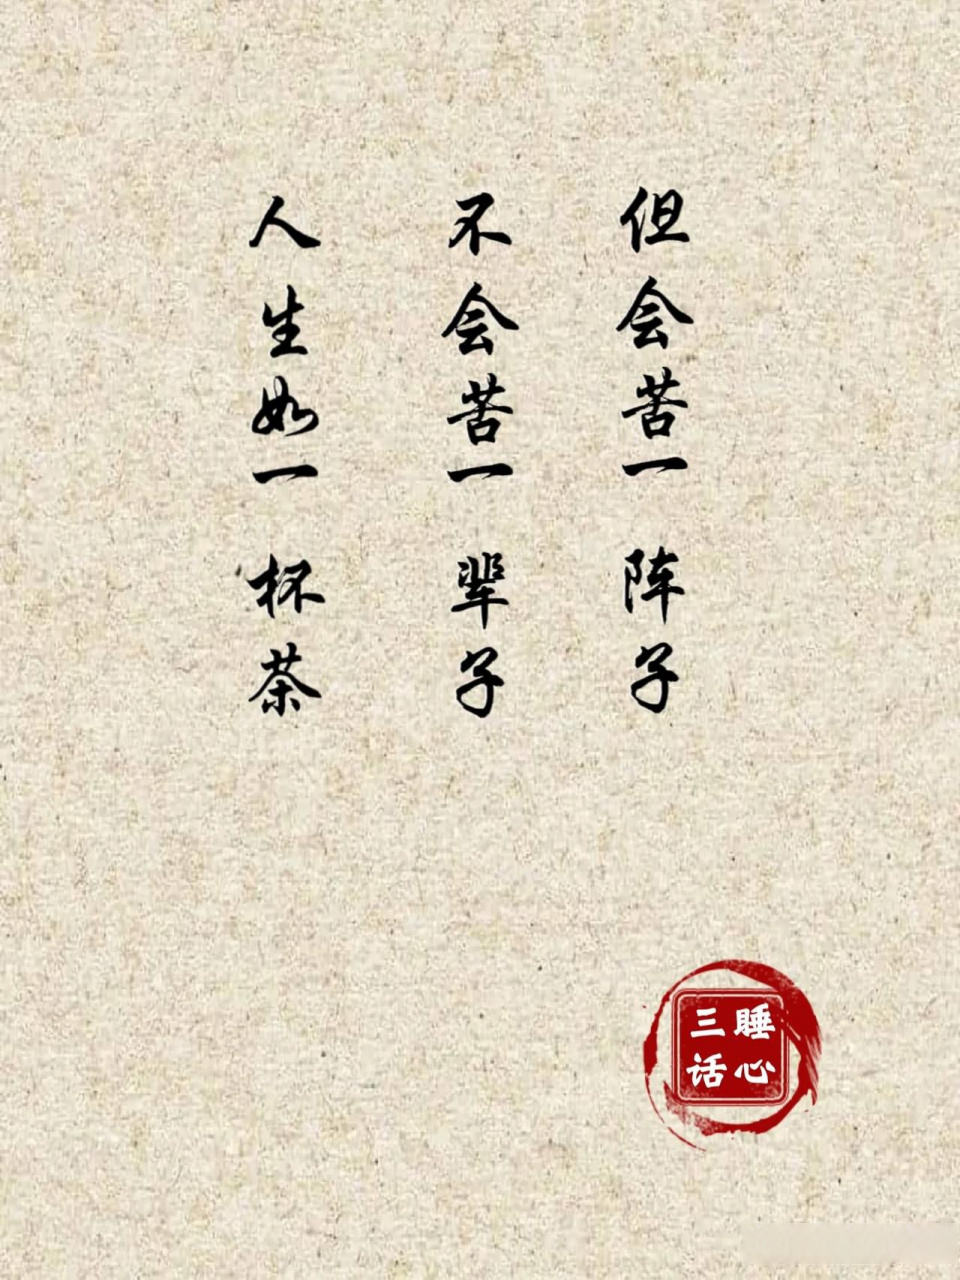 人生如一杯茶
不会苦一辈子
但会苦一阵子
三睡
话心